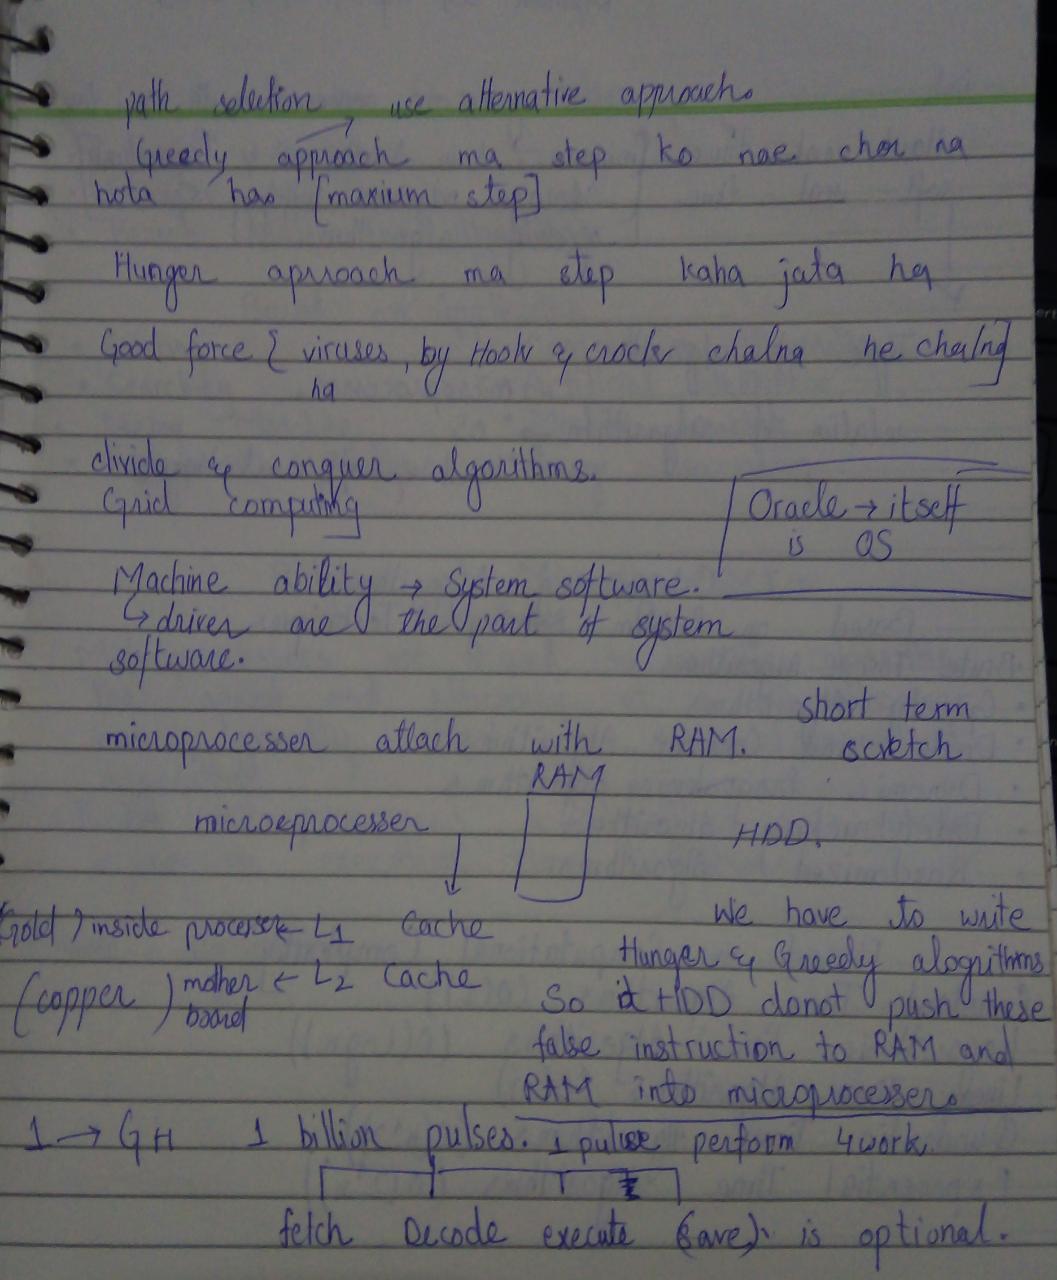 path selection use alternative approach.
Greedy approach ma step ko nae chor na
hota ha. [maxium step]
Hunger aproach ma step kaha jata ha
Good force { viruses, by Hook & crock chalna he chalna]
ha
divide & conquer algorithms.
Grid computing
Oracle → itself
is OS
Machine ability → System software.
↳ driver are the part of system
software.
short term
microprocesser attach with RAM. scretch
RAM
microeprocesser
HDD.
(Gold) inside processer ← L1 Cache
(copper) mother ← L2 Cache
board
We have to write
Hunger & Greedy alogrithms
So it HDD donot push these
false instruction to RAM and
RAM into microprocesser.
1 → GH 1 billion pulses. 1 pulse perform 4 work.
fetch Decode execute (save). is optional.